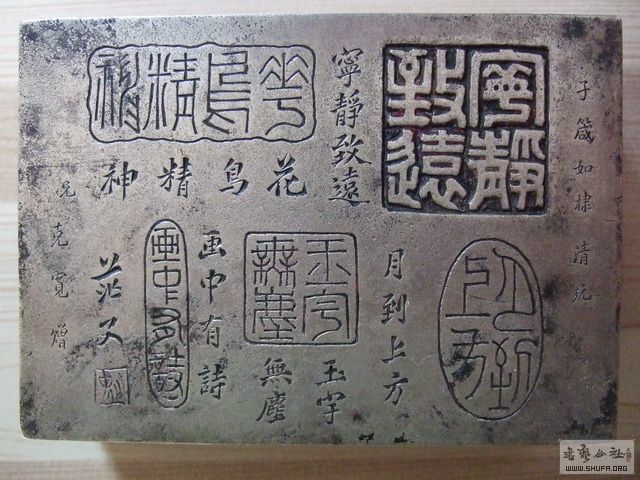 子箴如棣清玩
寧靜
致遠
寧靜致遠
花鳥精神
花鳥精神
月到上方
月到上方
玉宇
無塵
玉宇
無塵
画中有詩
画中有詩
茫父
兄克寬贈
書藝公社
WWW.SHUFA.ORG